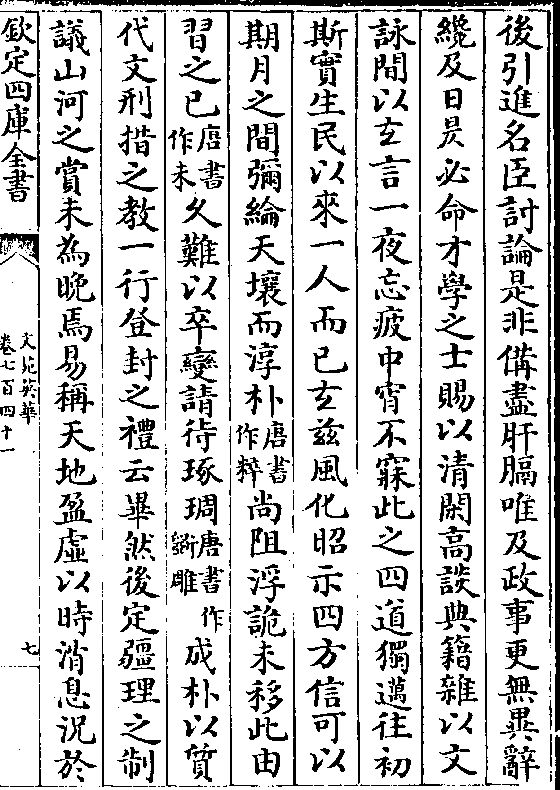 後引進名臣討論是非備盡肝膈唯及政事更無異辭
纔及日昃必命才學之士賜以清閑高談典籍雜以文
詠間以玄言一夜忘疲中宵不寐此之四道獨邁往初
斯實生民以來一人而已玄兹風化昭示四方信可以
期月之間彌綸天壤而淳朴唐書作粹尚阻浮詭未移此由
習之已唐書作未久難以卒變請待琢琱唐書作斵雕成朴以質
代文刑措之教一行登封之禮云畢然後定疆理之制
議山河之賞未為晚焉易稱天地盈虛以時消息況於
欽定四庫全書
文苑英華
卷七百四十一
七